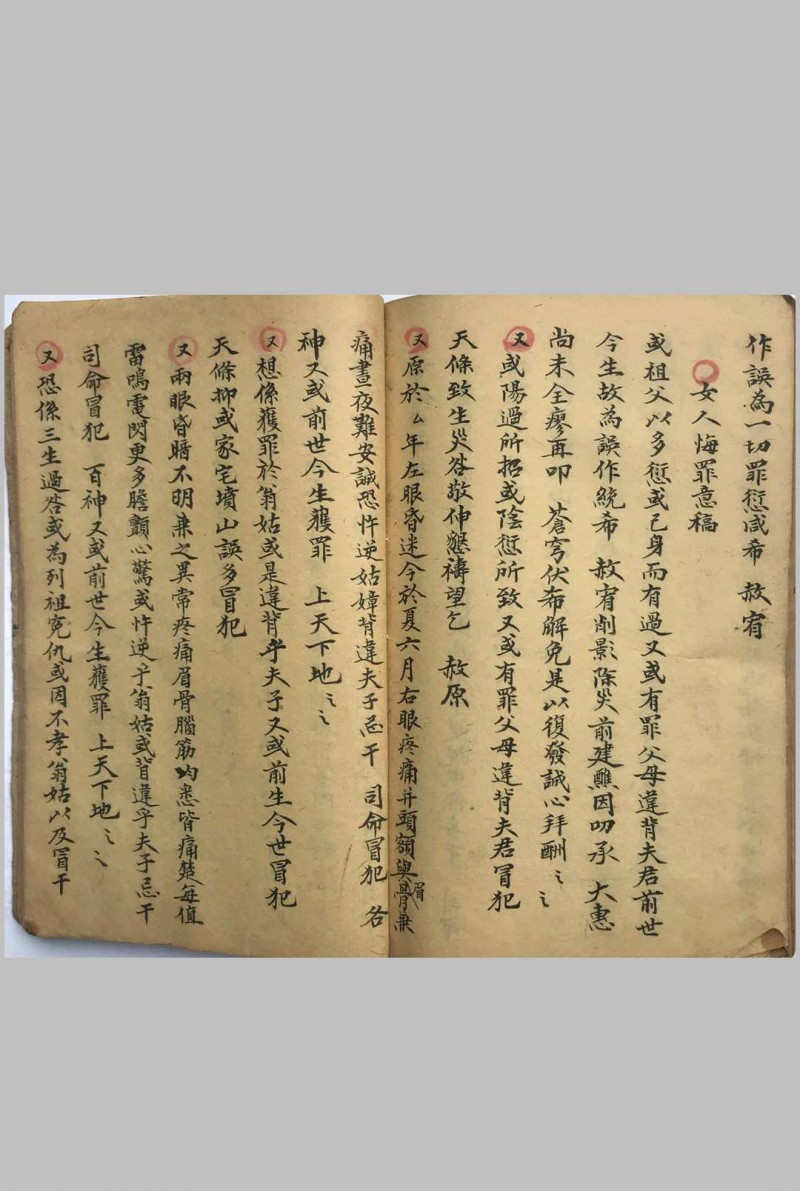 作誤為一切罪愆咸希 赦宥
女人悔罪意稿
或祖父以多愆或己身而有過又或有罪父母違背夫君前世
今生故為誤作統希 赦宥削影除災前建醮因叨承 大惠
尚未全瘳再叩 蒼穹伏希解免是以復發誠心拜酬〻〻
又或陽過所招或陰愆所致又或有罪父母違背夫君冒犯
天條致生災咎敬伸懇禱望乞 赦原
又原於厶年左眼昏迷今於夏六月右眼疼痛并頭額與眉骨兼
痛晝夜難安誠恐忤逆姑嫜背違夫子忌干 司命冒犯 各
神又或前世今生獲罪 上天下地〻〻
又想係獲罪於翁姑或是違背乎夫子又或前生今世冒犯
天條抑或家宅墳山誤多冒犯
又兩眼昏暗不明兼之異常疼痛眉骨腦筋均悉皆痛楚每值
雷鳴電閃更多膽顫心驚或忤逆乎翁姑或背違乎夫子忌干
司命冒犯 百神又或前世今生獲罪 上天下地〻〻
又恐係三生過咎或為列祖冤仇或因不孝翁姑以及冒干